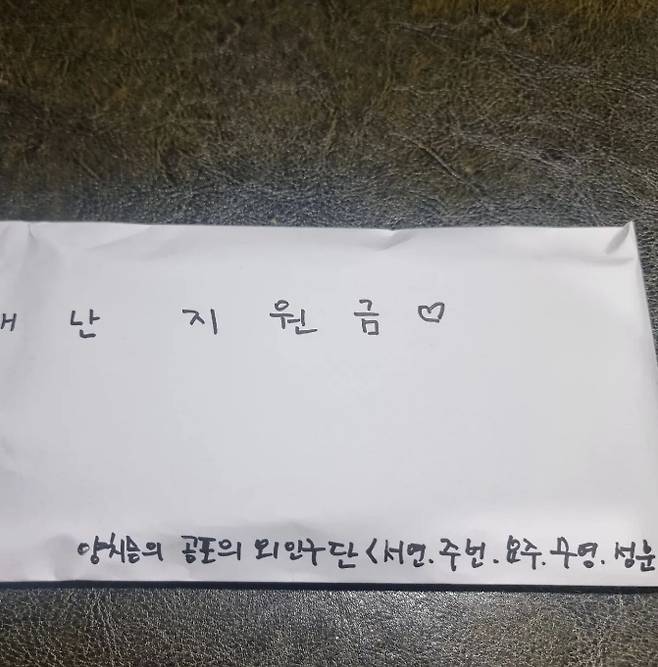 난 지원금♡
양치능의 공포의 외인구단 <서연.주번.요주.무영.성눈